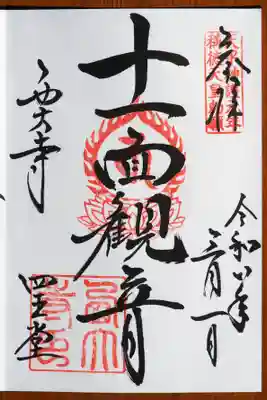 奉拝
令和八年
三月一日
十一面観音
西大寺
四王堂